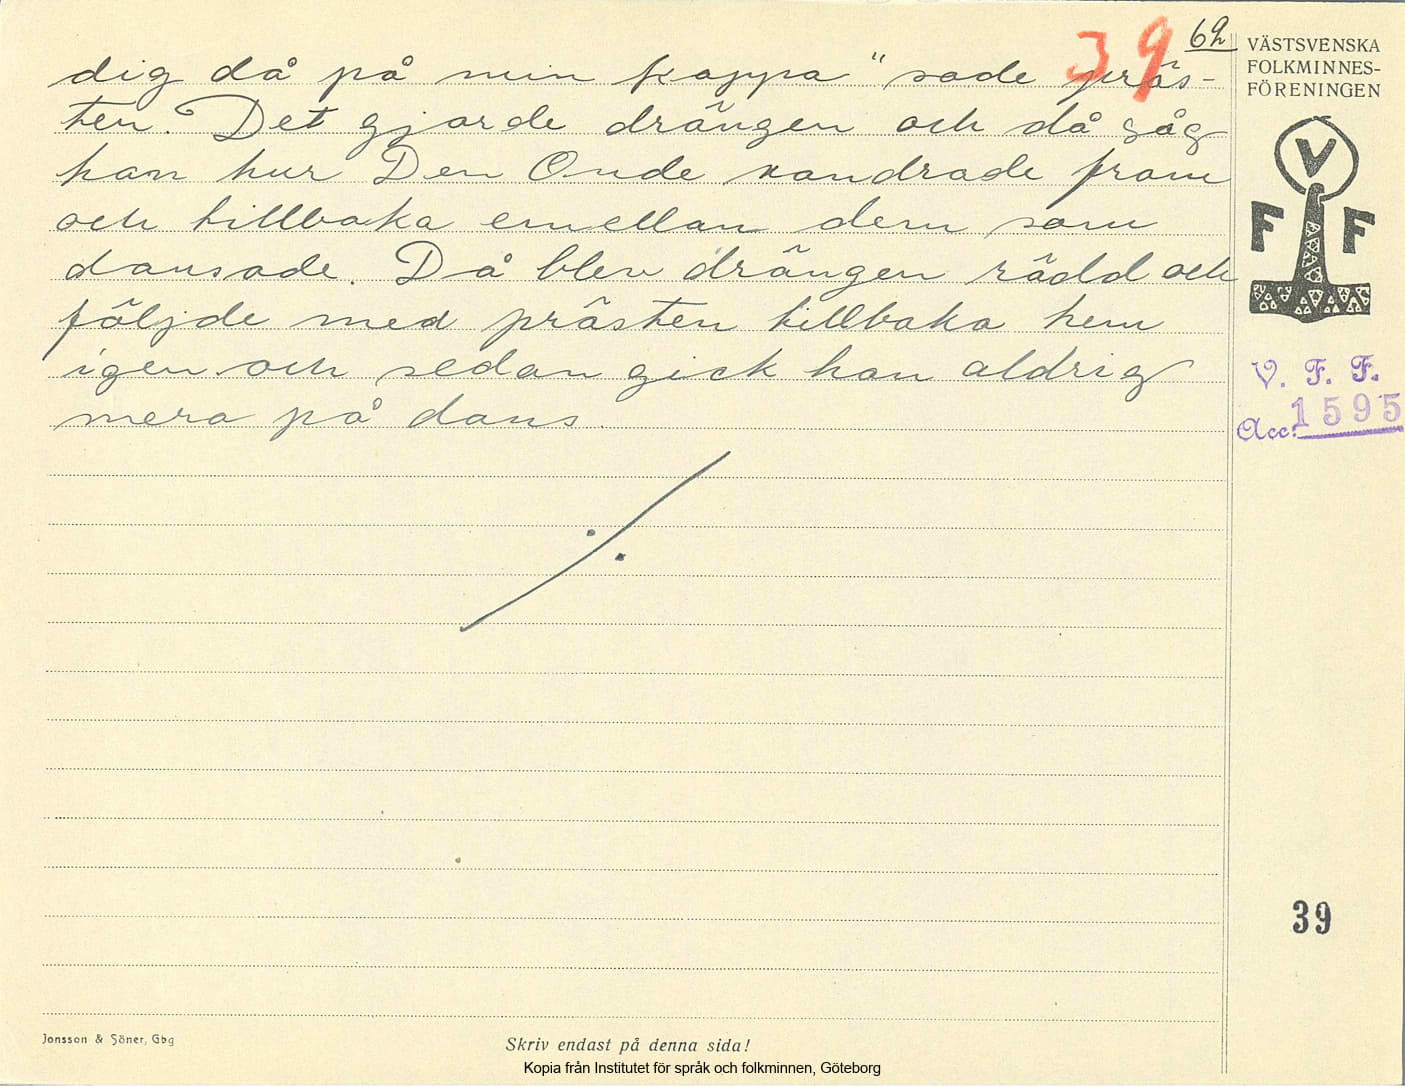 39
62
dig då på min kappa" sade präs-
ten. Det gjorde drängen och då såg
han hur Den Onde vandrade fram
och tillbaka emellan dem som
dansade. Då blev drängen rädd och
följde med prästen tillbaka hem
igen och sedan gick han aldrig
mera på dans.
VÄSTSVENSKA
FOLKMINNES-
FÖRENINGEN
V
F F
V. F. F.
Acc: 1595
39
Jonsson & Söner, Gbg
Skriv endast på denna sida!
Kopia från Institutet för språk och folkminnen, Göteborg